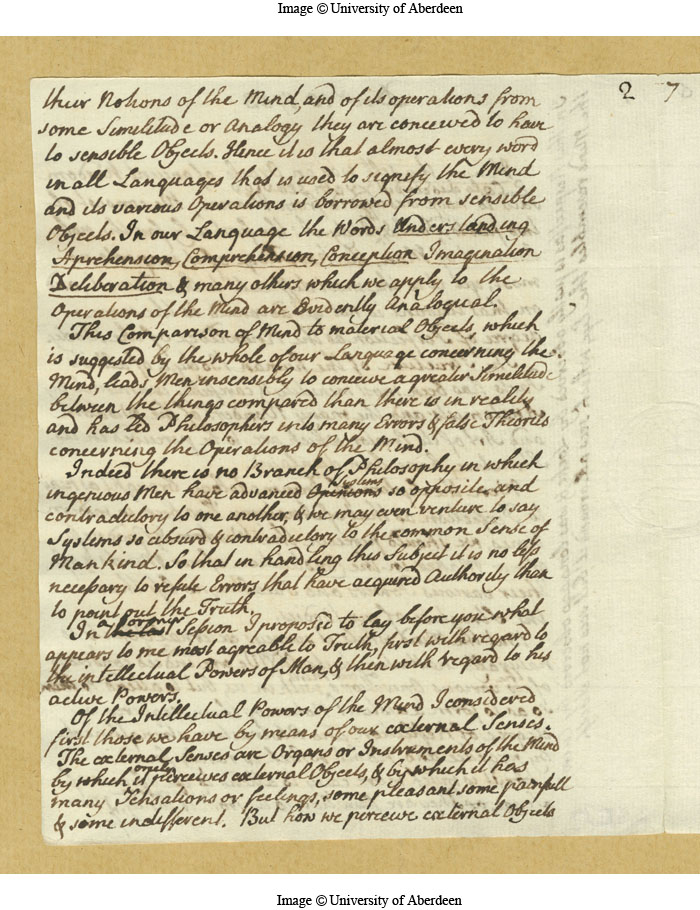 Image © University of Aberdeen
2 7
their Notions of the Mind, and of its operations from
some Similitude or Analogy they are conceived to have
to sensible Objects. Hence it is that almost every word
in all Languages that is used to signify the Mind
and its various Operations is borrowed from sensible
Objects. In our Language the Words Understanding
Aprehension, Comprehension, Conception Imagination
Deliberation & many others which we apply to the
Operations of the Mind are Evidently Analogical.
This Comparison of Mind to material Objects, which
is suggested by the whole of our Language concerning the
Mind, leads Men insensibly to conceive a greater Similitude
between the things compared than there is in reality
and has led Philosophers into many Errors & false Theories
concerning the Operations of the Mind.
Indeed there is no Branch of Philosophy in which
Systems
ingenious Men have advanced Opinions so opposite and
contradictory to one another, & we may even venture to say
Systems so absurd & contradictory to the common Sense of
Mankind. So that in handling this Subject it is no less
necessary to refute Errors that have acquired Authority than
to point out the Truth.
a former
In the last Session I proposed to lay before you what
appears to me most agreable to Truth, first with regard to
the intellectual Powers of Man, & then with regard to his
active Powers.
Of the Intellectual Powers of the Mind I considered
first those we have by means of our external Senses.
The external Senses are Organs or Instruments of the Mind
by which it perceives external Objects, & by which it has
many Sensations or feelings, some pleasant some painfull
& some indifferent. But how we perceive external Objects
Image © University of Aberdeen